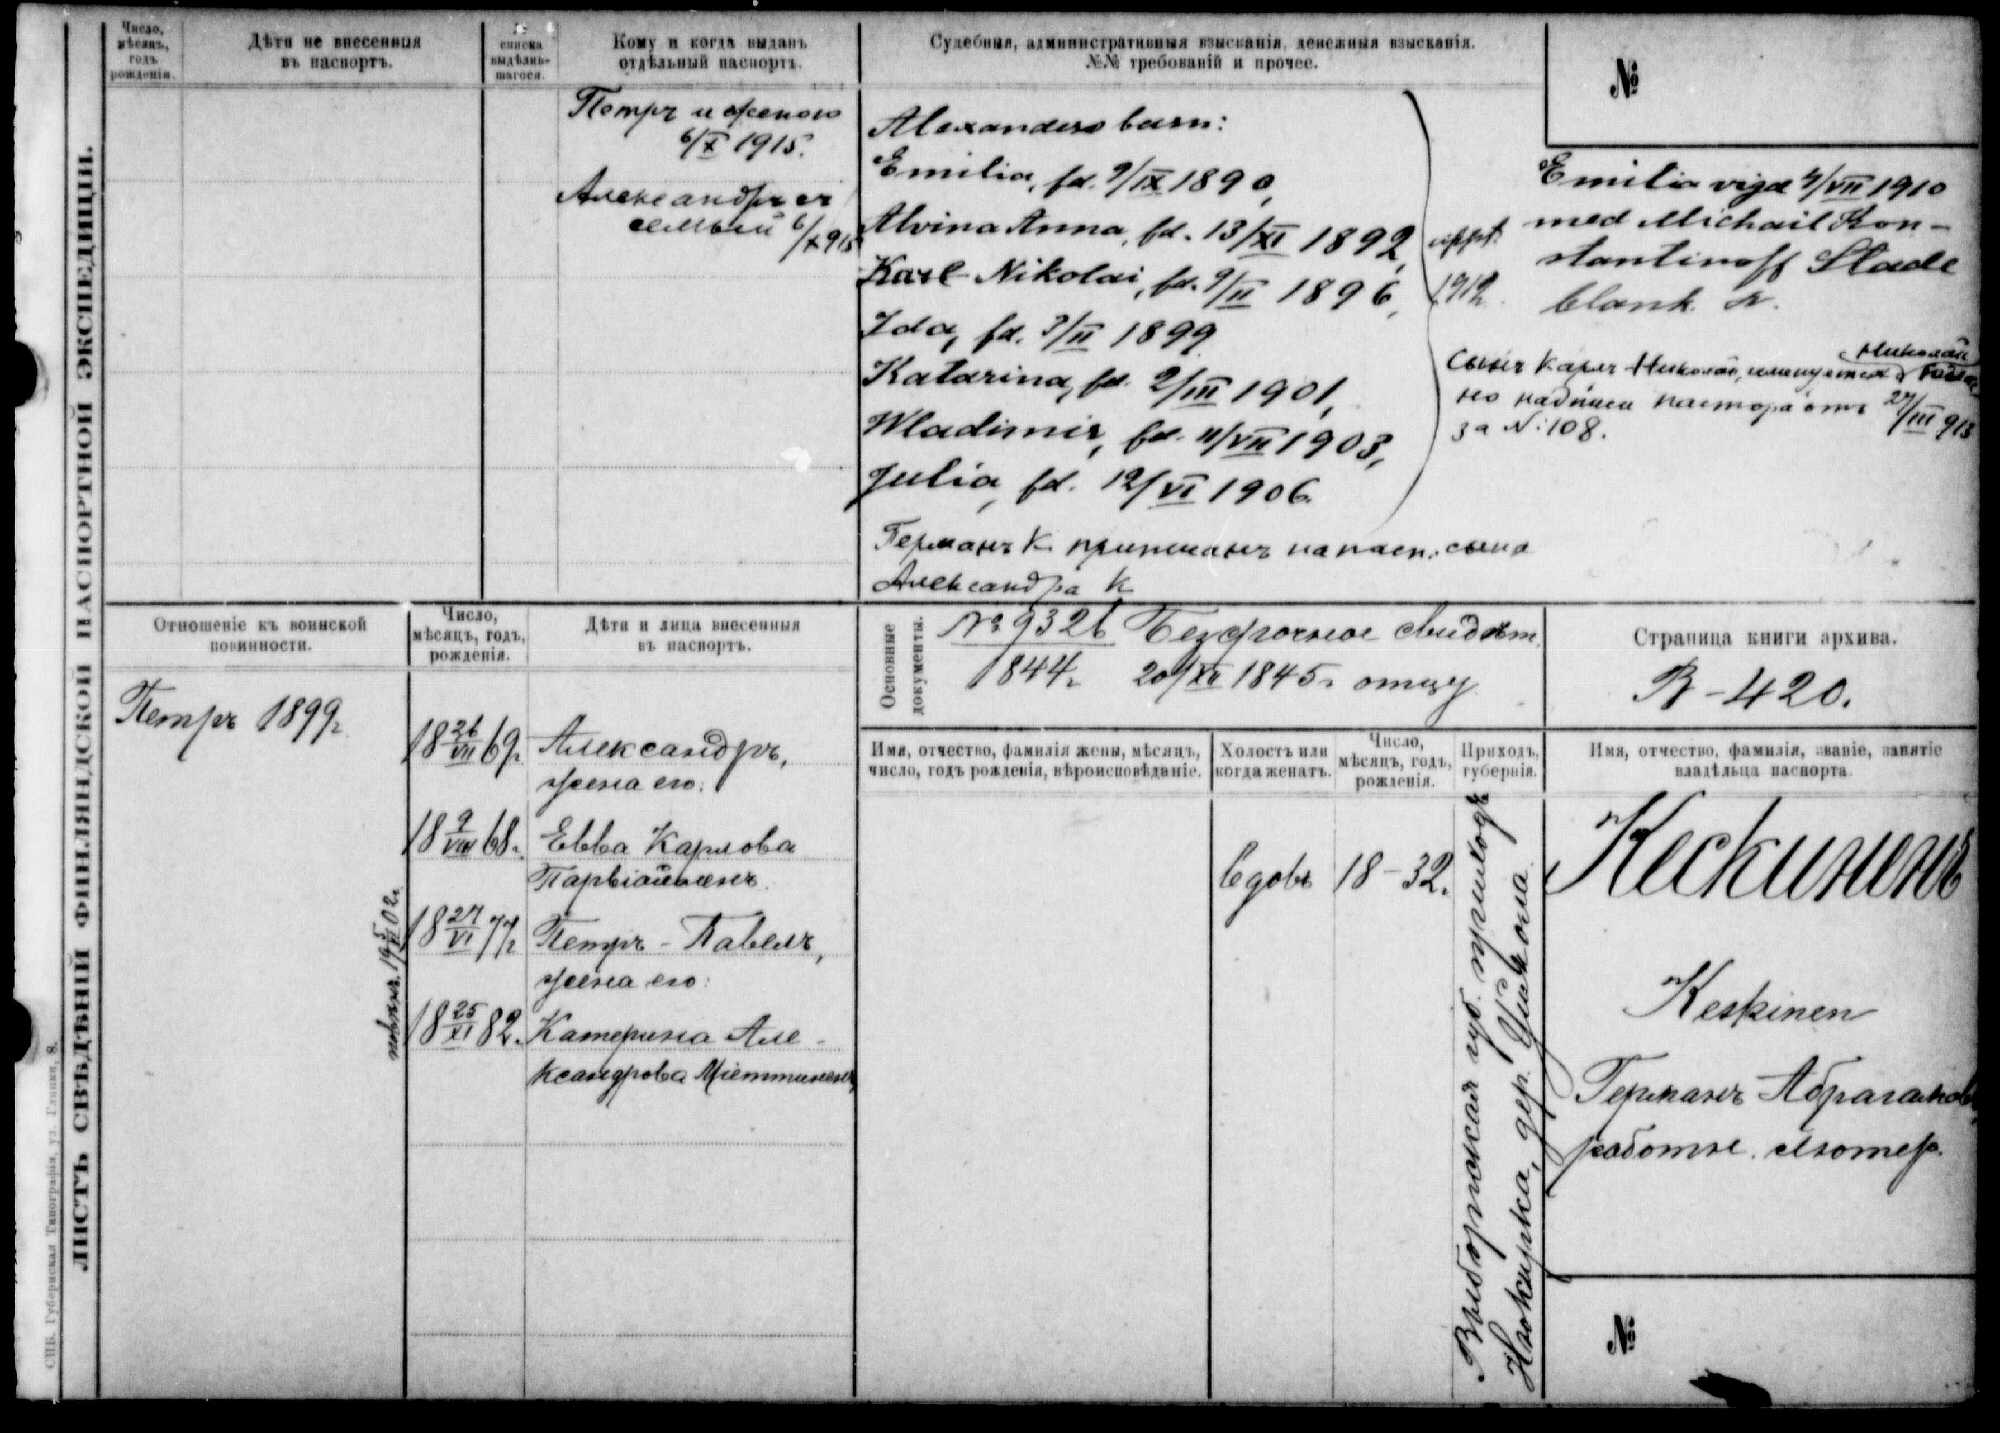 ЛИСТЪ СВѢДѢНІЙ ФИНЛЯНДСКОЙ ПАСПОРТНОЙ ЭКСПЕДИЦІИ.
СПБ. Губернская Типографія, ул. Глинки, 8.
Число, мѣсяцъ, годъ рожденія.
Дѣти не внесенныя
въ паспортъ.
№ списка выдѣлив-шагося.
Кому и когда выданъ
отдѣльный паспортъ.
Петръ и женою
6/X 1915.
Александръ съ
семьей 6/X 915
Судебныя, административныя взысканія, денежныя взысканія.
№№ требованій и прочее.
Alexanders barn:
Emilia, fd. 9/IX 1890,
Alvina Anna, fd. 13/XI 1892,
Karl Nikolai, fd. 9/II 1896,
Ida, fd. 3/II 1899
Katarina, fd. 2/III 1901,
Wladimir, fd. 11/VII 1903,
Julia, fd. 12/VI 1906.
uppt.
1912.
Германъ К. приписанъ на пасп. сына
Александра К
№
Emilia vigd 4/VII 1910
med Michail Kon-
stantinoff Stade
blank.
Сынъ Карлъ Николай, именуется Николай
но надписи пастора отъ 27/III 913
за №:108.
Отношеніе къ воинской
повинности.
Петръ 1899г.
Число,
мѣсяцъ, годъ,
рожденія.
Дѣти и лица внесенныя
въ паспортъ.
18 26/VII 69г. Александръ,
жена его:
18 9/VIII 68г. Евва Карлова
Парвіайненъ.
18 27/VI 77г. Петръ - Павелъ,
жена его:
18 25/XI 82г. Катерина Але-
ксандрова Міеттиненъ,
19 5/VI 02г.
Основные
документы.
№ 9326 Безсрочное свидѣт.
1844г. 20/XII 1845г. отцу
Страница книги архива.
В - 420.
Имя, отчество, фамилія жены, мѣсяцъ,
число, годъ рожденія, вѣроисповѣданіе.
Холостъ или
когда женатъ.
Вдовъ
Число,
мѣсяцъ, годъ,
рожденія.
18 - 32г.
Приходъ,
губернія.
Выборгская губ. приходъ
Нюкирка, дер.
Имя, отчество, фамилія, званіе, занятіе
владѣльца паспорта.
Кескиненъ
Keskinen
Германъ Абрагамовъ
работн.
№